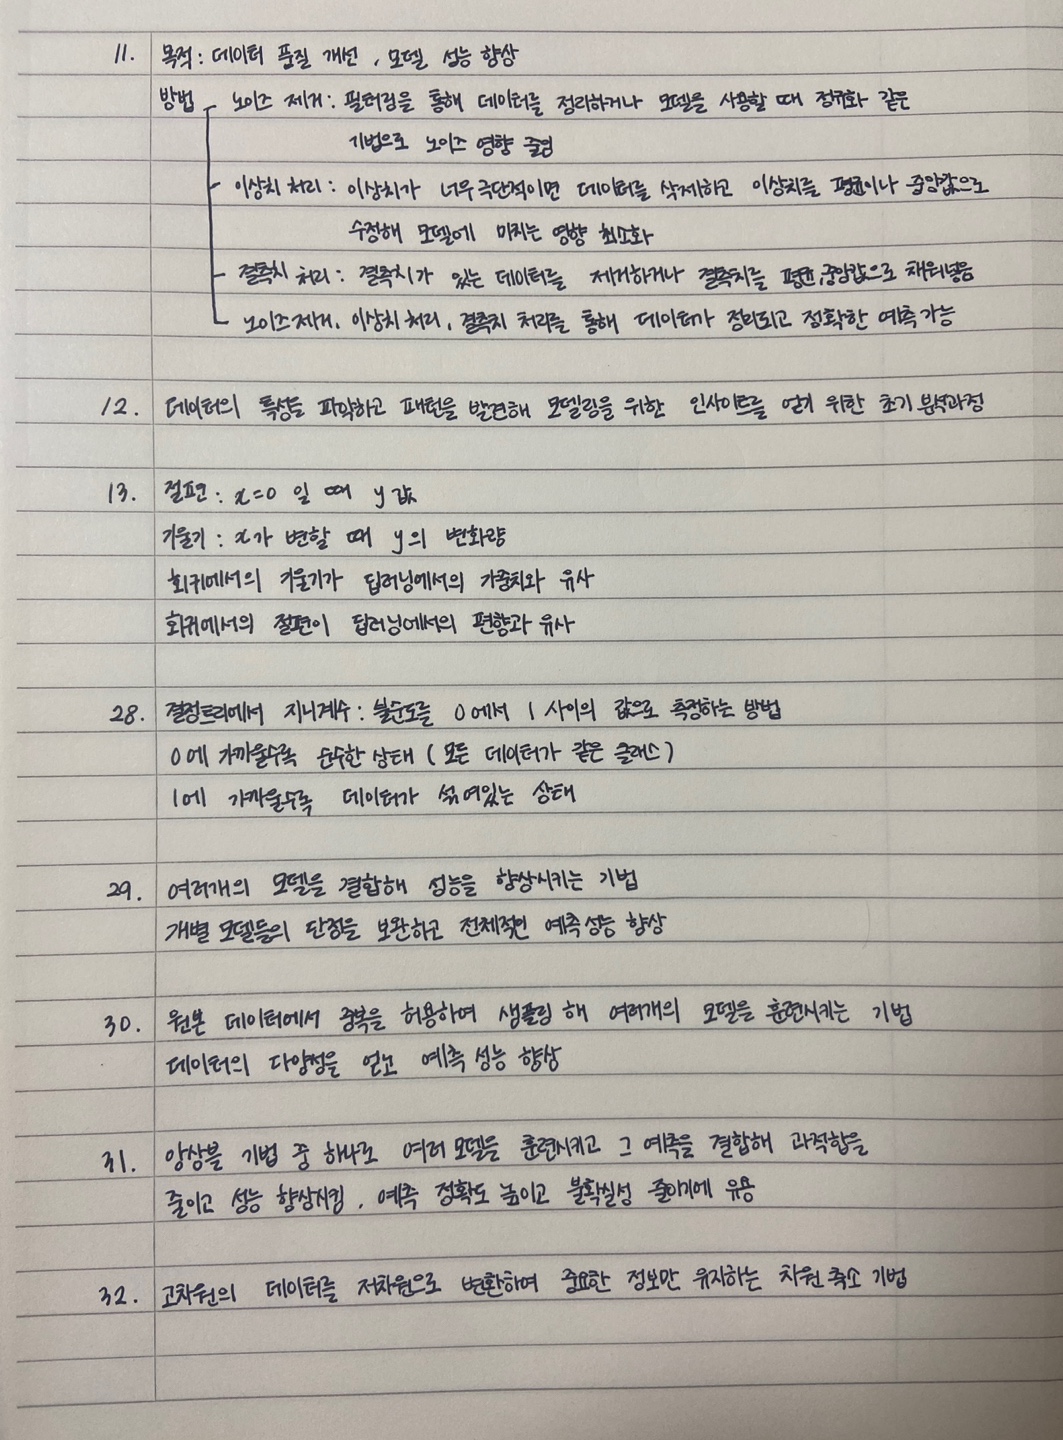 11. 목적 : 데이터 품질 개선, 모델 성능 향상
방법 노이즈 제거 : 필터링을 통해 데이터를 정리하거나 모델을 사용할 때 정규화 같은
기법으로 노이즈 영향 줄임
이상치 처리 : 이상치가 너무 극단적이면 데이터를 삭제하고 이상치를 평균이나 중앙값으로
수정해 모델에 미치는 영향 최소화
결측치 처리 : 결측치가 있는 데이터를 제거하거나 결측치를 평균, 중앙값으로 채워넣음
노이즈제거, 이상치 처리, 결측치 처리를 통해 데이터가 정리되고 정확한 예측 가능
12. 데이터의 특성을 파악하고 패턴을 발견해 모델링을 위한 인사이트를 얻기 위한 초기 분석과정
13. 절편 : x=0 일 때 y 값
기울기 : x가 변할 때 y의 변화량
회귀에서의 기울기가 딥러닝에서의 가중치와 유사
회귀에서의 절편이 딥러닝에서의 편향과 유사
28. 결정트리에서 지니계수 : 불순도를 0에서 1 사이의 값으로 측정하는 방법
0에 가까울수록 순수한 상태 (모든 데이터가 같은 클래스)
1에 가까울수록 데이터가 섞여있는 상태
29. 여러개의 모델을 결합해 성능을 향상시키는 기법
개별 모델들의 단점을 보완하고 전체적인 예측성능 향상
30. 원본 데이터에서 중복을 허용하여 샘플링 해 여러개의 모델을 훈련시키는 기법
데이터의 다양성을 얻고 예측 성능 향상
31. 앙상블 기법 중 하나로 여러 모델을 훈련시키고 그 예측을 결합해 과적합을
줄이고 성능 향상시킴, 예측 정확도 높이고 불확실성 줄이기에 유용
32. 고차원의 데이터를 저차원으로 변환하여 중요한 정보만 유지하는 차원 축소 기법